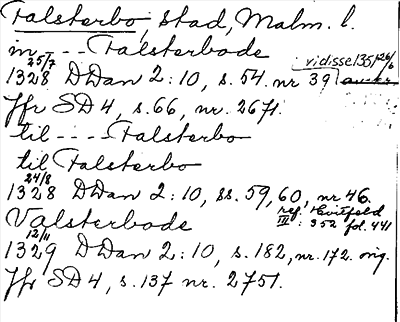 Falsterbo, stad, Malm. l.
in --- Falsterbode
1328 25/7 DDan 2:10, s. 54. nr 39 vidisse 1351 26/6
Jfr SD 4, s. 66, nr. 2671.
til ---- Falsterbo
til Falsterbo
1328 24/8 DDan 2:10, ss. 59, 60, nr 46.
ref. Hvitfeld III: 352 fol. 441
Valsterbode
1329 12/11 DDan 2:10, s. 182, nr. 172. orig.
Jfr SD 4, s. 137 nr. 2751.